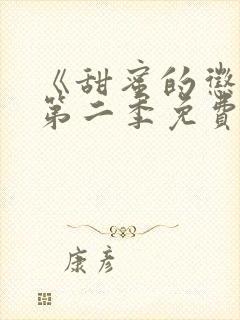 《甜蜜的惩
第二季免费
康彦